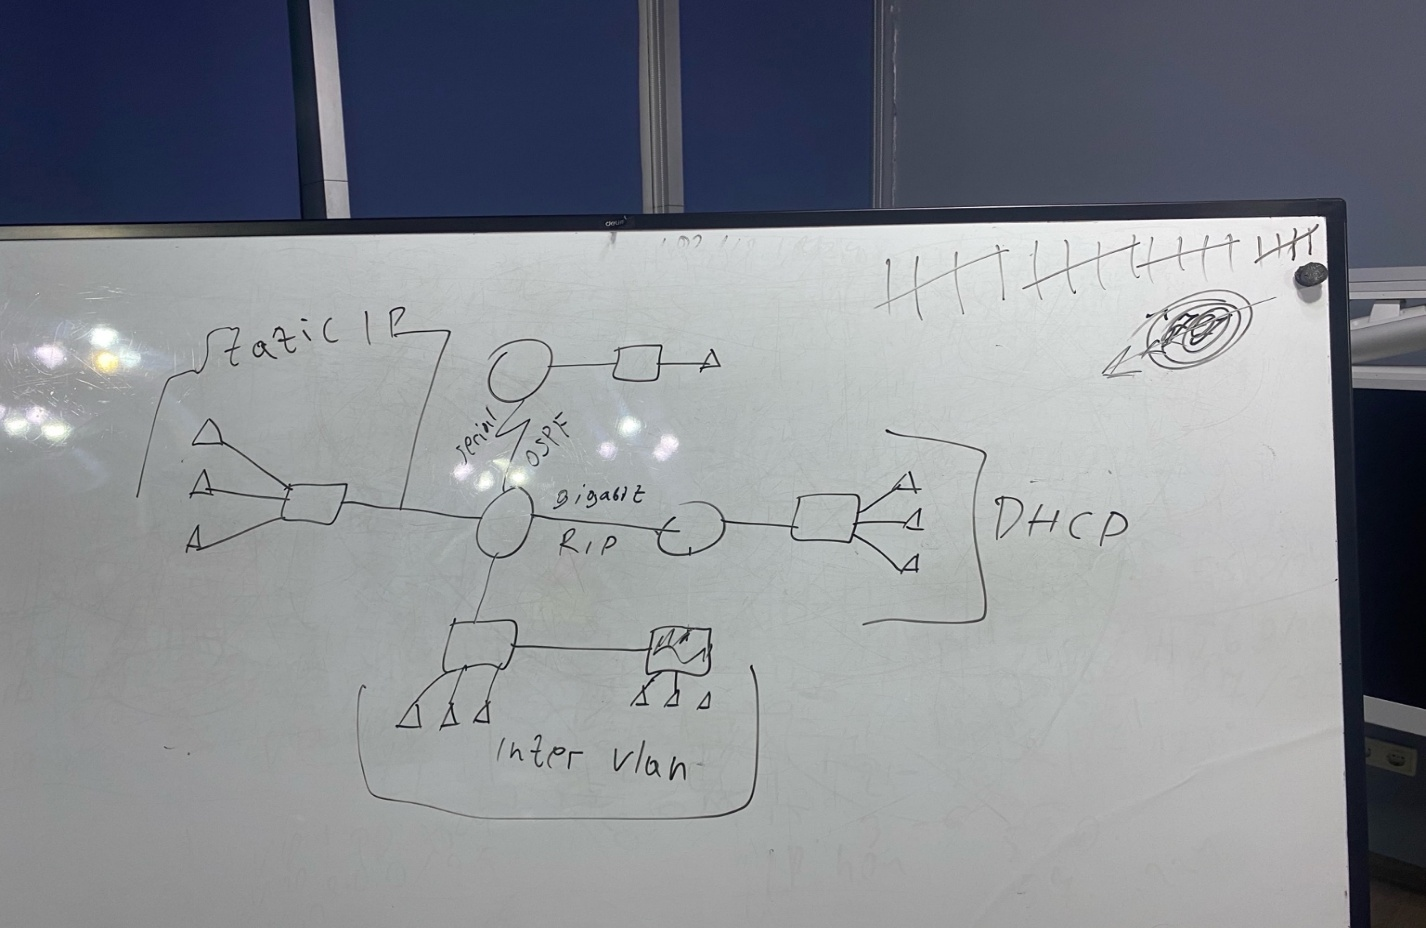 Static IP
serial
OSPF
gigabit
RIP
DHCP
Inter vlan